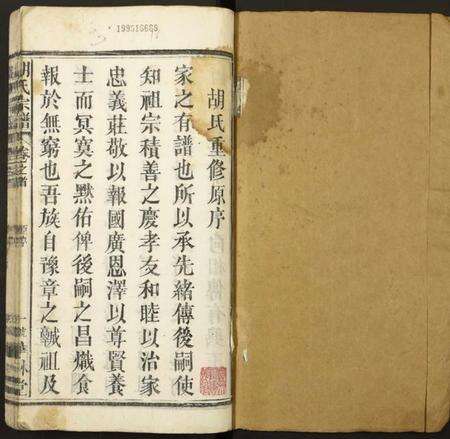 199516668
胡氏重修原序
家之有譜也所以承先緒傳後嗣使
知祖宗積善之慶孝友和睦以治家
忠義莊敬以報國廣恩澤以尊賢養
士而冥冥之黙佑俾後嗣之昌熾食
報於無窮也吾族自豫章之𫝑祖及
胡氏宗譜